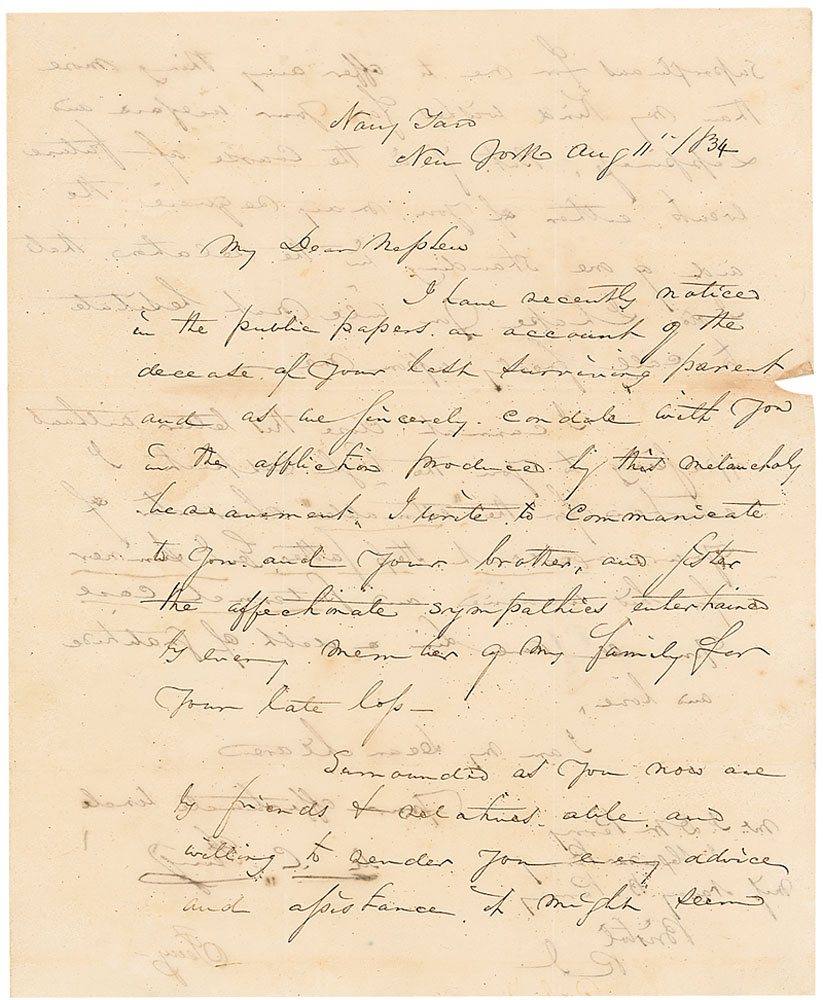 Navy Yard
New York Aug 11th 1834
My Dear Nephew
I have recently noticed
in the public papers an account of the
decease of your last surviving parent
and as we sincerely condole with you
in the affliction produced by this melancholy
bereavement, I write to communicate
to you and your brother, and sister
the affectionate sympathies entertained
by every member of my family for
your late loss—
Surrounded as you now are
by friends & relatives able and
willing to render you every advice
and assistance it might seem